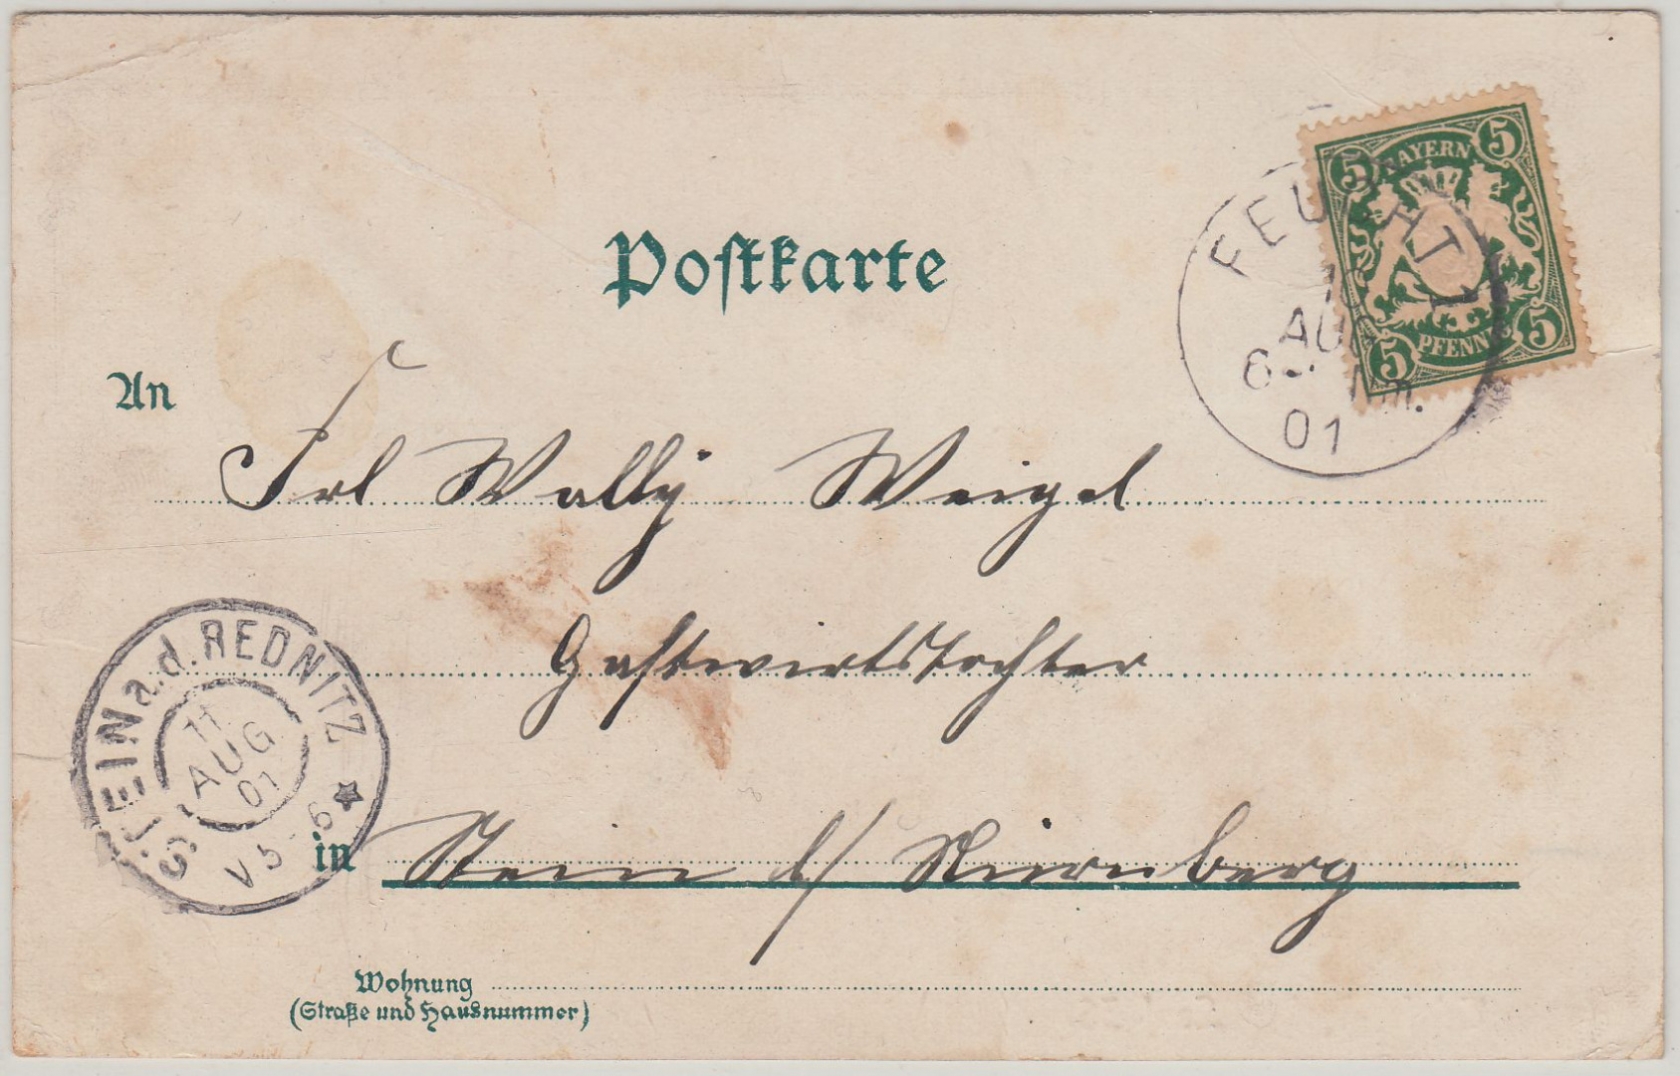 Postkarte
BAYERN
5 5
5 5
PFENNIG
FEUCHT
10
AUG
6
Nm.
01
An
Frl Wally Weigel
Gastwirtstochter
STEIN a.d. REDNITZ
11
AUG
01
V 5-6
in Stein b/ Nürnberg
Wohnung
(Straße und Hausnummer)